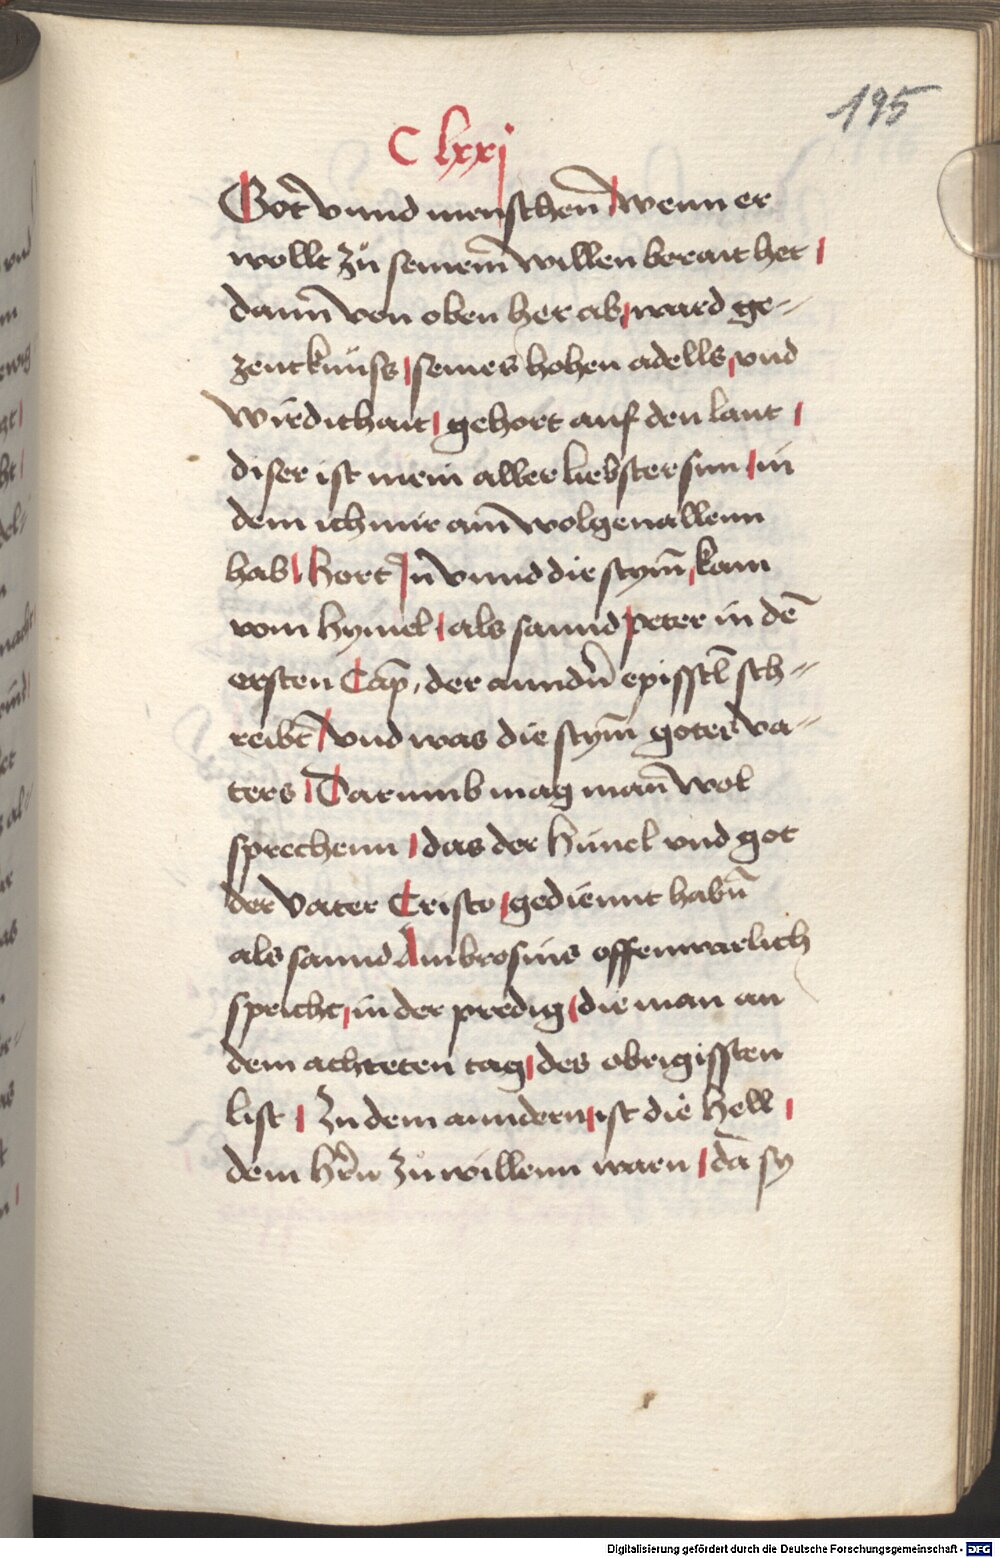 195
C lxxj
Got vnnd menschen̄ / wenn er
wollt zů seinem̄ willen berait het /
dann̄ von oben her ab / ward ge-
zeukknüss / seines hohen adells / vnd
wirdikhait / gehort auf den laut /
diser ist mein aller liebster sun / in
dem ich mir ain̄ wolgeuallenn
hab / Hort Jn̄ vnnd die stym̄ / kam
vom hymel / als sannd peter in dē
ersten Cap̄ . der anndn̄ episstl̄ sch-
reibt̄ / vnd was die stym̄ gotes va-
ters / Darumb mag man̄ wol
sprechenn / das der himel vnd got
der vater Cristo / gediennt habn̄
als sannd Ambrosius offennwarlich
spricht / in der predig / die man an
dem achteten tag / des obrigissten
list / Zu dem anndern / ist die hell /
dem hrn̄ zů willenn warn / da sy
Digitalisierung gefördert durch die Deutsche Forschungsgemeinschaft - DFG